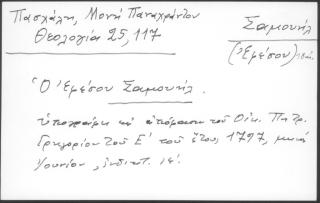 Πασχάλη, Μονή Παναχράντου
Θεολογία 25, 117
Σαμουήλ
(Ἐμέσου)
Ὁ Ἐμέσου Σαμουήλ.
ὑπογράφει ἀπόφασιν τοῦ Οἰκ. Πατρ.
Γρηγορίου τοῦ Ε΄ τοῦ ἔτους 1797, μηνί
Ἰουνίου, ἰνδικτ. ιε΄.